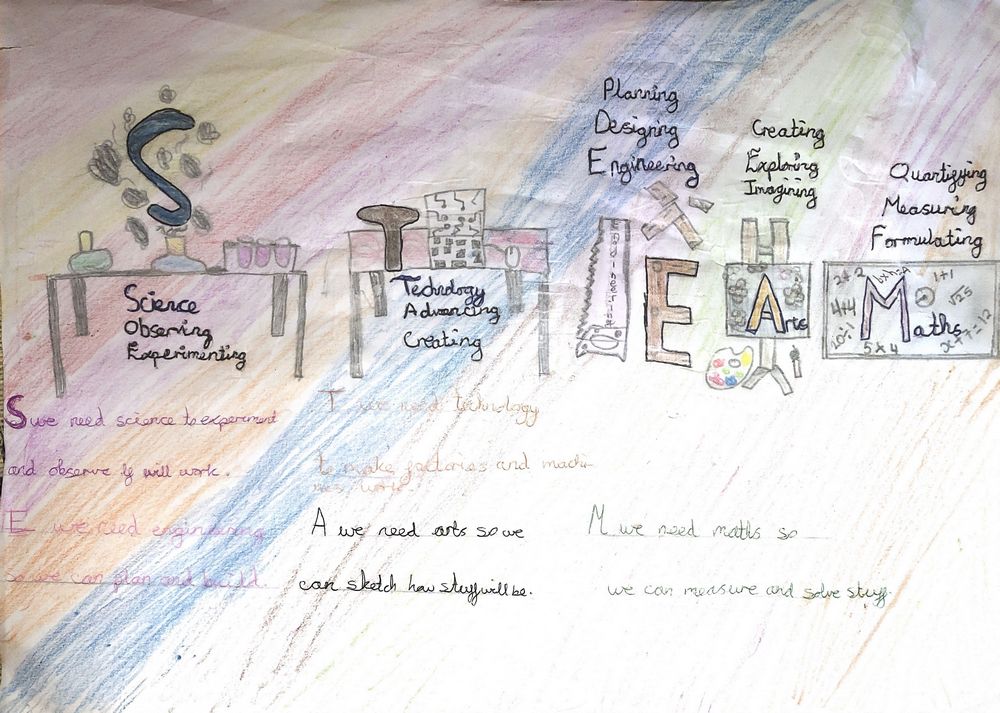 S
Science
Observing
Experimenting
Technology
Advancing
Creating
Planning
Designing
Engineering
Engineering
E
Creating
Exploring
Imagining
Arts
Quantifying
Measuring
Formulating
2+2
b×h=A
1+1
4+4
√25
Maths
20÷1
5×4
x+7=12
S we need science to experiment
and observe if will work.
T we need technology
to make factories and machi-
nes work.
E we need engineering
so we can plan and build.
A we need arts so we
can sketch how stuff will be.
M we need maths so
we can measure and solve stuff.